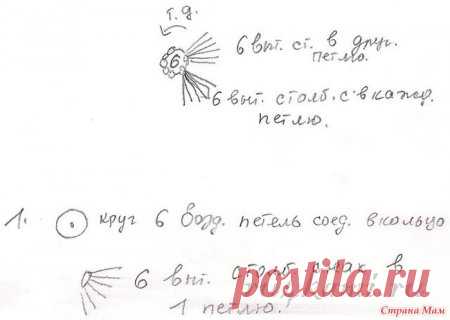 т.д.
6
6 выт. ст. в друг.
петлю.
6 выт. столб. с в кажд.
петлю.
1. круг 6 возд. петель соед. в кольцо
6 выт. столб в
1 петлю.
postila.ru
Страна Мам